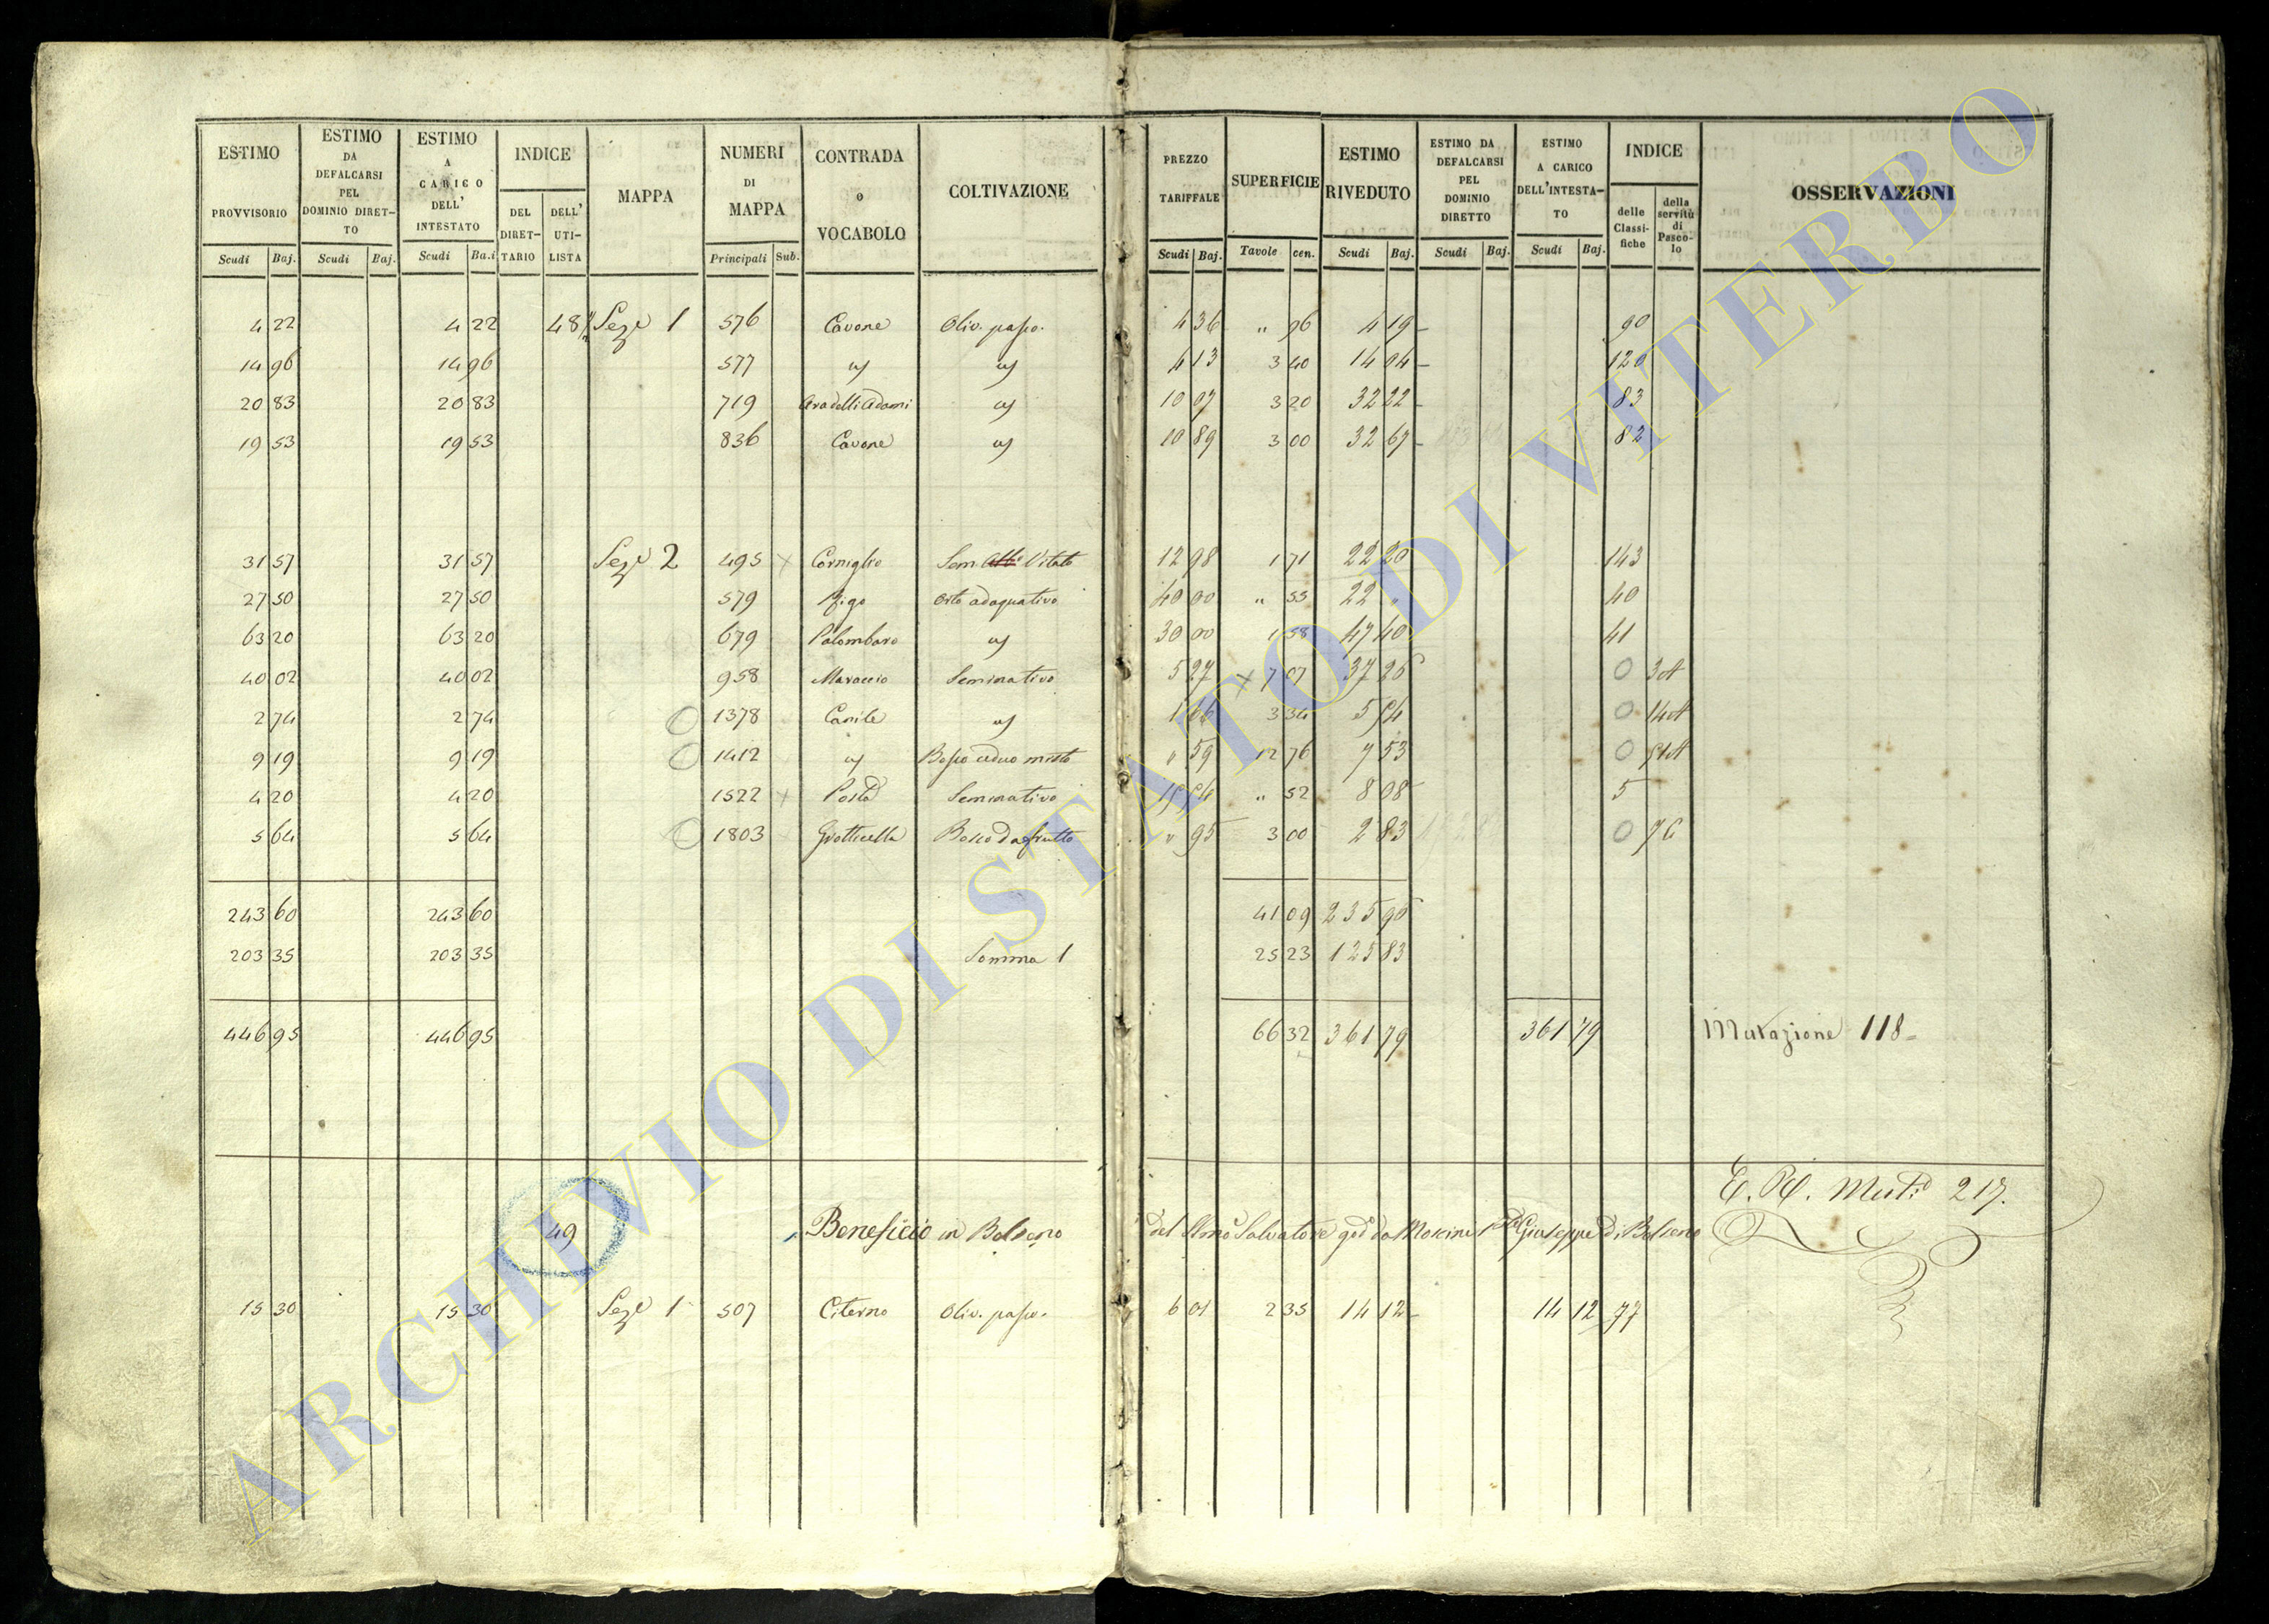 ESTIMO PROVVISORIO Scudi Baj. | ESTIMO DA DEFALCARSI PEL DOMINIO DIRETTO Scudi Baj. | ESTIMO A CARICO DELL' INTESTATO Scudi Baj. | INDICE DEL DIRETTARIO DELL' UTILISTA | MAPPA | NUMERI DI MAPPA Principali Sub. | CONTRADA O VOCABOLO | COLTIVAZIONE | PREZZO TARIFFALE Scudi Baj. | SUPERFICIE Tavole cen. | ESTIMO RIVEDUTO Scudi Baj. | ESTIMO DA DEFALCARSI PEL DOMINIO DIRETTO Scudi Baj. | ESTIMO A CARICO DELL'INTESTATO Scudi Baj. | INDICE delle Classifiche della servitù di Pascolo | OSSERVAZIONI
4 22 4 22 48 Seze 1 576 Cavone Oliv. paso. 4 36 " 96 4 19 90
14 96 14 96 577 " " 4 13 3 40 14 04 120
20 83 20 83 719 " 10 07 3 20 32 22 83
19 53 19 53 836 Cavone " 10 89 3 00 32 67 82
31 57 31 57 Seze 2 495 x Corniglio Sem. Vitato 12 98 1 71 22 20 143
27 50 27 50 579 Rigo Orto adaquativo 40 00 " 55 22 " 40
63 20 63 20 679 Palombaro " 30 00 1 58 47 40 41
40 02 40 02 958 Maraccio Seminativo 5 27 x 7 07 37 26 0 3A
2 74 2 74 1378 Canile " 1 66 3 34 5 54 0 14A
9 19 9 19 1412 " Bosco ceduo misto " 59 12 76 7 53 0 51A
4 20 4 20 1522 x Posta Seminativo 15 54 " 52 8 08 5
5 64 5 64 1803 Grotticella Bosco da frutto " 95 3 00 2 83 0 7C
243 60 243 60 41 09 235 96
203 35 203 35 Somma 1 25 23 125 83
446 95 446 95 66 32 361 79 361 79 Mutazione 118
Mut. 217.
49 Beneficio in Bolseno del Salvatore god. da Giuseppe di Bolseno
15 30 15 30 Seze 1 507 Citerno Oliv. paso. 6 01 2 35 14 12 14 12 77
ARCHIVIO DI STATO DI VITERBO